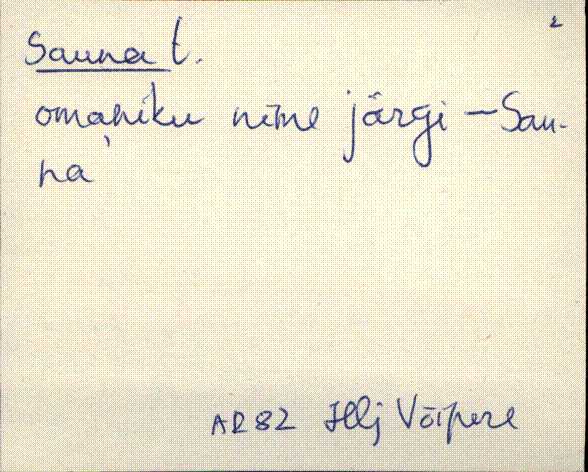 Sauna t.
omaņiku nime järgi – Sau-
na
AR82 Illj Võipere